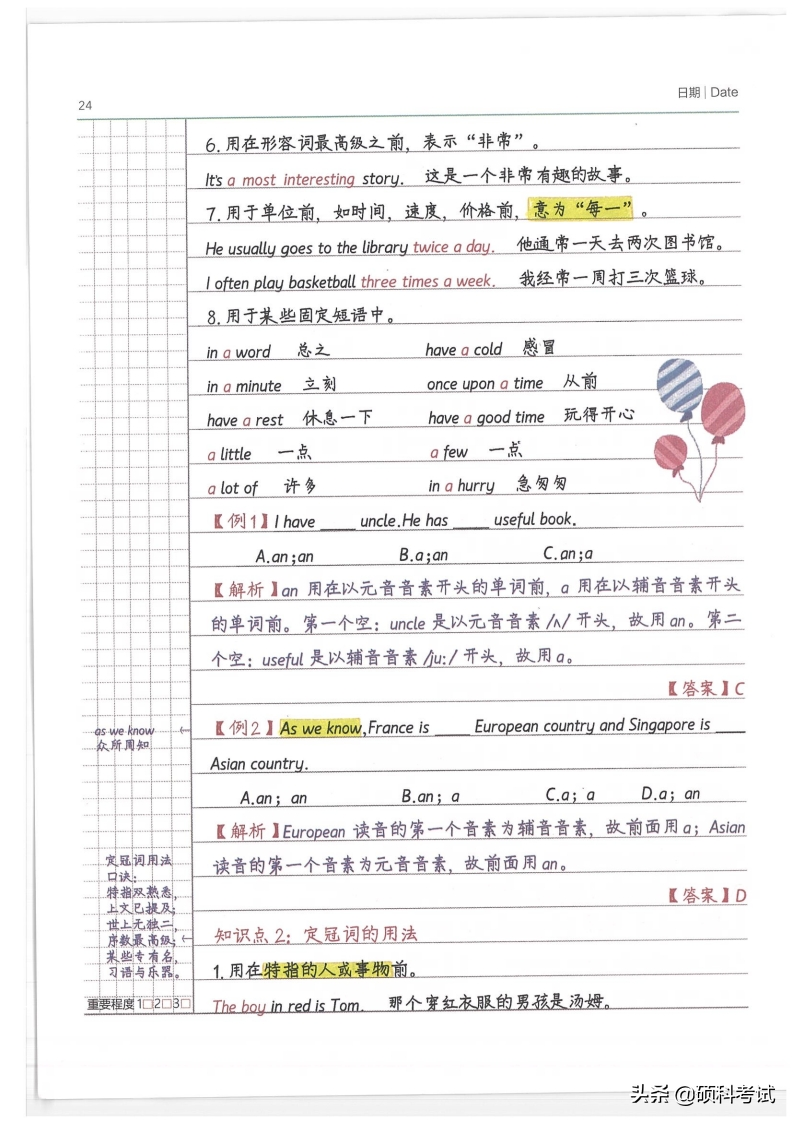 24
日期 | Date
6.用在形容词最高级之前，表示“非常”。
It's a most interesting story. 这是一个非常有趣的故事。
7.用于单位前，如时间，速度，价格前，意为“每一”。
He usually goes to the library twice a day. 他通常一天去两次图书馆。
I often play basketball three times a week. 我经常一周打三次篮球。
8.用于某些固定短语中。
in a word 总之 have a cold 感冒
in a minute 立刻 once upon a time 从前
have a rest 休息一下 have a good time 玩得开心
a little 一点 a few 一点
a lot of 许多 in a hurry 急匆匆
【例1】I have ____ uncle.He has ____ useful book.
A.an;an B.a;an C.an;a
【解析】an 用在以元音音素开头的单词前，a 用在以辅音音素开头
的单词前。第一个空：uncle 是以元音音素 /ʌ/ 开头，故用 an。第二
个空：useful 是以辅音音素 /ju:/ 开头，故用 a。
【答案】C
as we know
众所周知
【例2】As we know,France is ____ European country and Singapore is ____
Asian country.
A.an；an B.an；a C.a；a D.a；an
【解析】European 读音的第一个音素为辅音音素，故前面用 a；Asian
读音的第一个音素为元音音素，故前面用 an。
【答案】D
定冠词用法
口诀：
特指双熟悉，
上文已提及；
世上无独二，
序数最高级；
某些专有名，
习语与乐器。
知识点 2：定冠词的用法
1.用在特指的人或事物前。
The boy in red is Tom. 那个穿红衣服的男孩是汤姆。
重要程度 1□2□3□
头条 @硕科考试